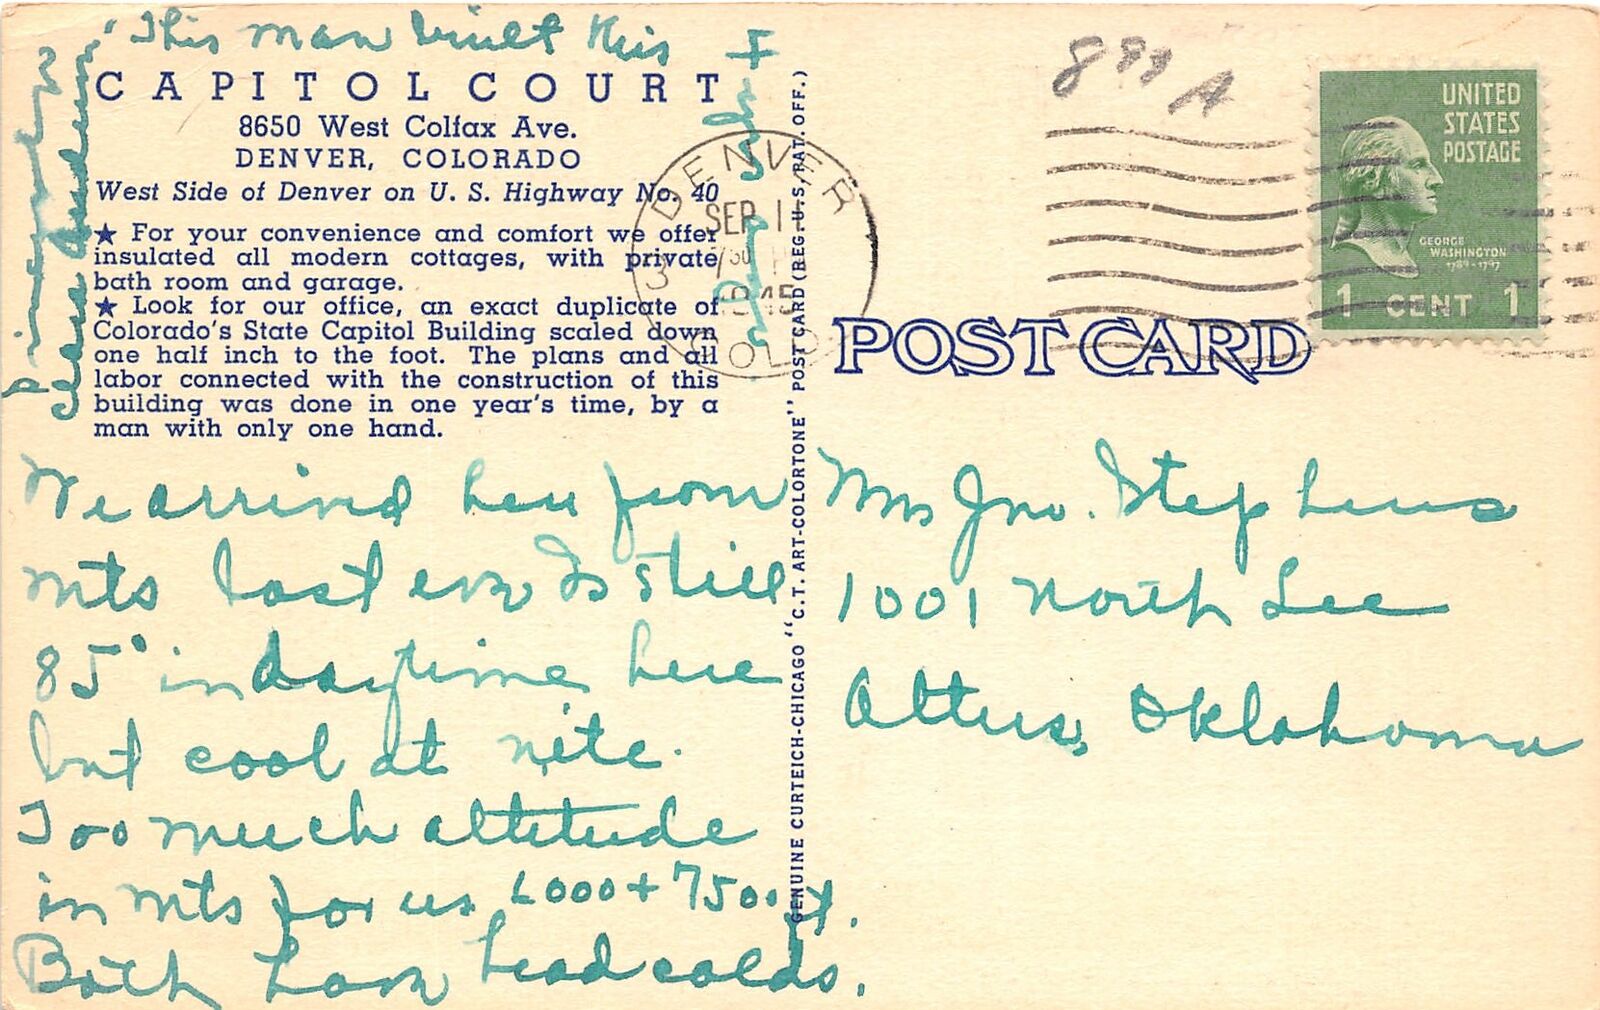 "This man built this
CAPITOL COURT
8650 West Colfax Ave.
DENVER, COLORADO
West Side of Denver on U. S. Highway No. 40
★ For your convenience and comfort we offer
insulated all modern cottages, with private
bath room and garage.
★ Look for our office, an exact duplicate of
Colorado's State Capitol Building scaled down
one half inch to the foot. The plans and all
labor connected with the construction of this
building was done in one year's time, by a
man with only one hand.
We arrived here from
mts last eve Is still
85° in daytime here
but cool at nite.
Too much altitude
in mts for us 6000 + 7500 ft.
Both have head colds.
GENUINE CURTEICH-CHICAGO "C.T. ART-COLORTONE" POST CARD (REG. U.S. PAT. OFF.)
DENVER
SEP 1
7 30
1945
COLO
3
899 A
UNITED
STATES
POSTAGE
GEORGE
WASHINGTON
1789-1797
1 CENT 1
POST CARD
Mrs Jno. Stephens
1001 North Lee
Altus, Oklahoma